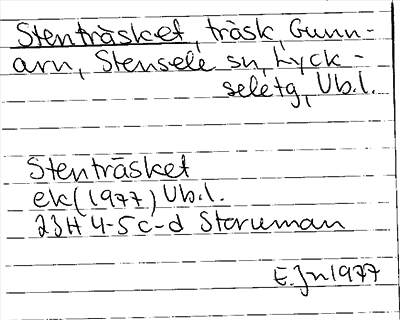 Stenträsket, träsk, Gunn-
arn, Stensele sn, Lyck-
seletg, Vb.l.
Stenträsket
ek(1977) Vb.l.
23H 4-5 c-d Storuman
E.Jn 1977